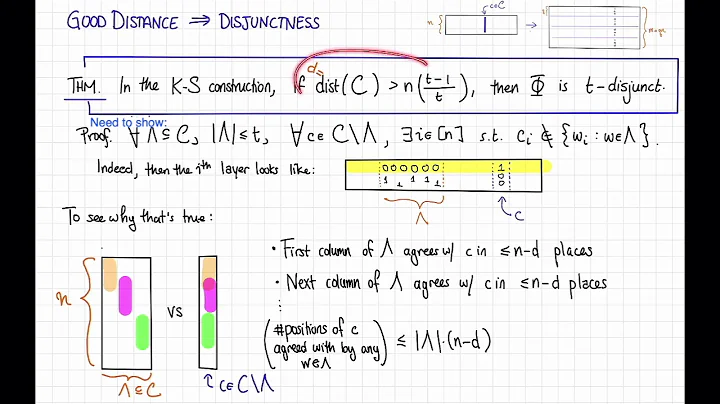 GOOD DISTANCE ⇒ DISJUNCTNESS
c∈C
n
THM. In the K-S construction, if dist(C) > n(t-1/t), then Φ is t-disjunct.
d=
Need to show:
Proof. ∀ Λ ⊆ C, |Λ| ≤ t, ∀ c ∈ C\Λ, ∃ i ∈ [n] s.t. c_i ∉ {w_i : w ∈ Λ}.
Indeed, then the i^th layer looks like:
0 0 0 0 0 0 1
1 1 1 1 1 0
0
Λ
C
To see why that's true:
• First column of Λ agrees w/ c in ≤ n-d places
• Next column of Λ agrees w/ c in ≤ n-d places
⋮
n
vs
(#positions of c
agreed with by any
w∈Λ) ≤ |Λ|·(n-d)
Λ ⊆ C
c ∈ C\Λ